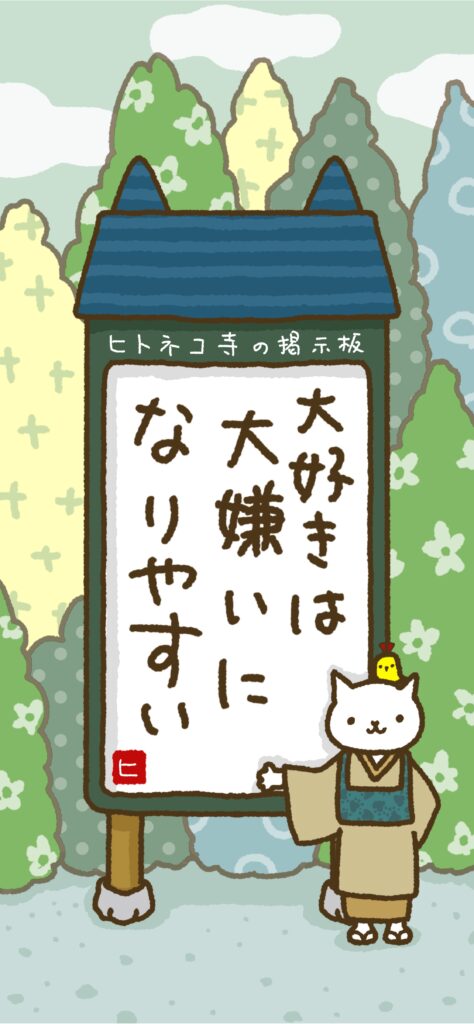 ヒトネコ寺の掲示板
大好きは
大嫌いに
なりやすい
ヒ